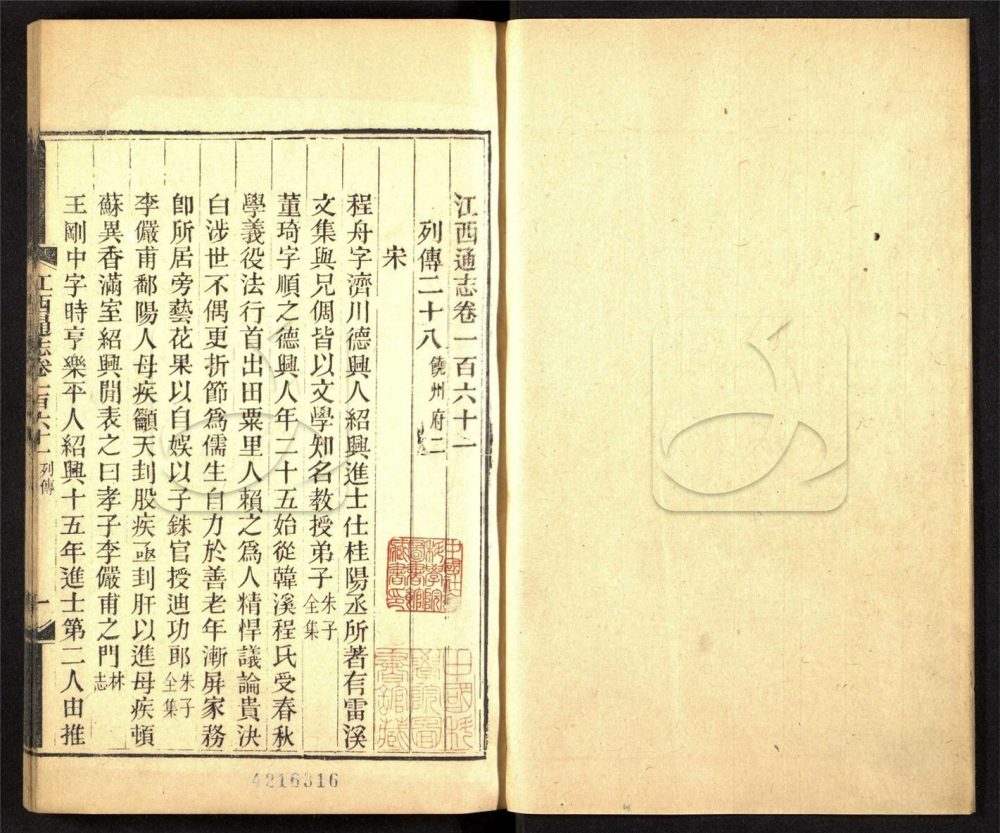 江西通志卷一百六十一
列傳二十八 饒州府二
宋
程舟字濟川德興人紹興進士仕桂陽丞所著有雷溪
文集與兄倜皆以文學知名教授弟子 朱子全集
董琦字順之德興人年二十五始從韓溪程氏受春秋
學義役法行首出田粟里人賴之爲人精悍議論貴決
白涉世不偶更折節爲儒生自力於善老年漸屏家務
卽所居旁藝花果以自娛以子銖官授迪功郎 朱子全集
李儼甫鄱陽人母疾籲天刲股疾亟刲肝以進母疾頓
蘇異香滿室紹興閒表之曰孝子李儼甫之門 林志
王剛中字時亨樂平人紹興十五年進士第二人由推
江西通志卷一百六十一 列傳 一
4216316